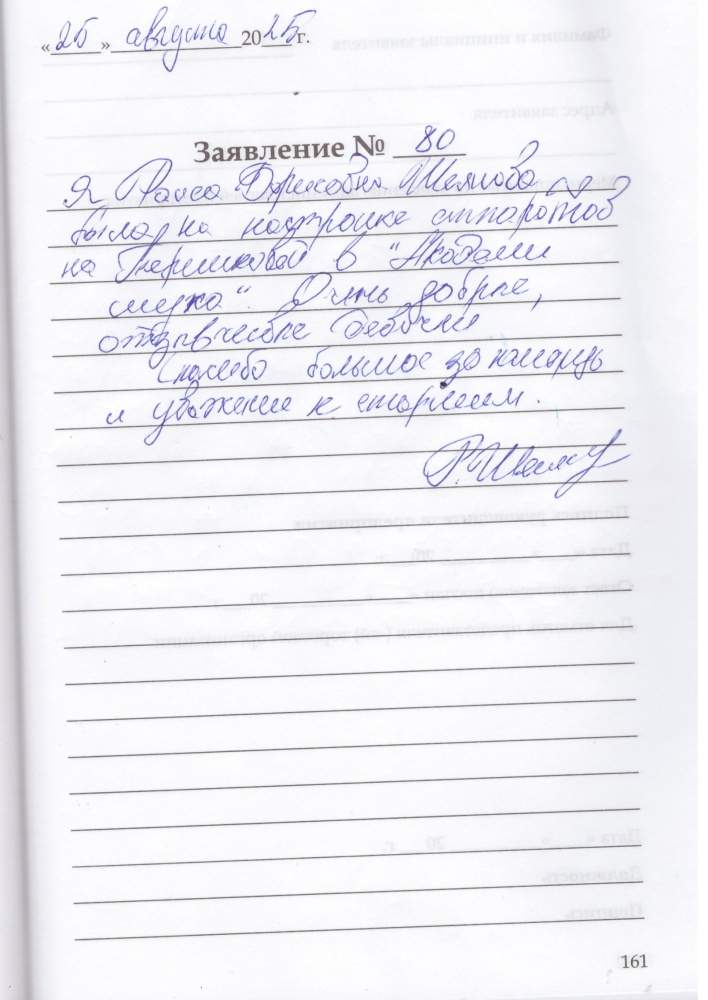 «25» августа 2025 г.
Заявление № 80
Я Раиса Борисовна
была на настройке аппаратов
на Терешковой в "Академии
слуха". Очень добрые,
отзывчивые девочки
Спасибо большое за помощь
и уважение к старшим.
161